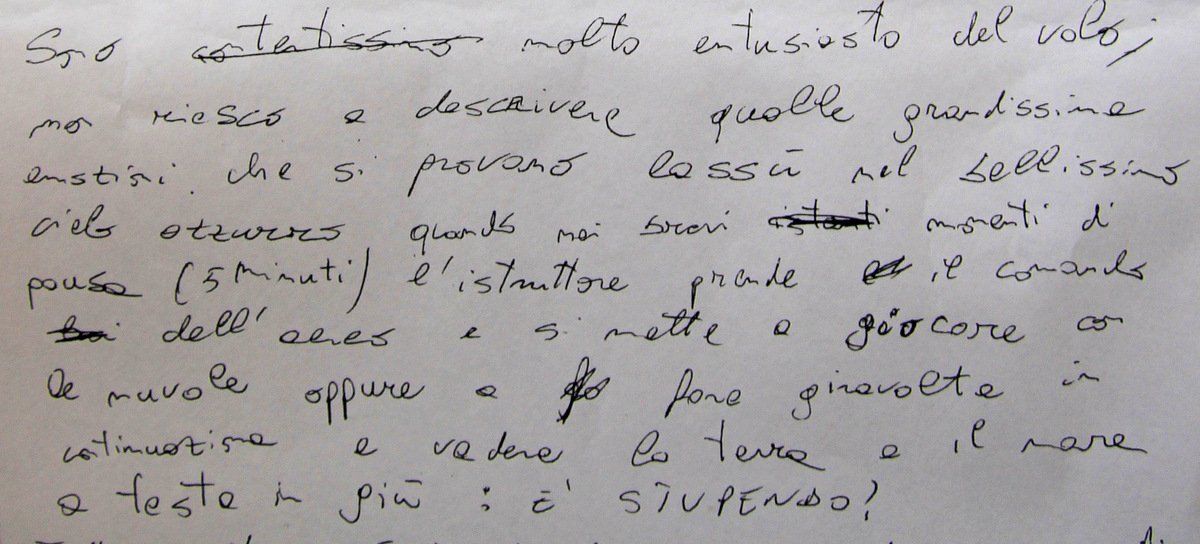 Sono contentissimo molto entusiasto del volo;
non riesco a descrivere quelle grandissime
emozioni che si provano lassù nel bellissimo
cielo azzurro quando nei brevi istanti momenti di
pausa (5 minuti) l'istruttore prende il comando
dell'aereo e si mette a giocare con
le nuvole oppure a fare giravolte in
continuazione e vedere la terra e il mare
a testa in giù : È STUPENDO!